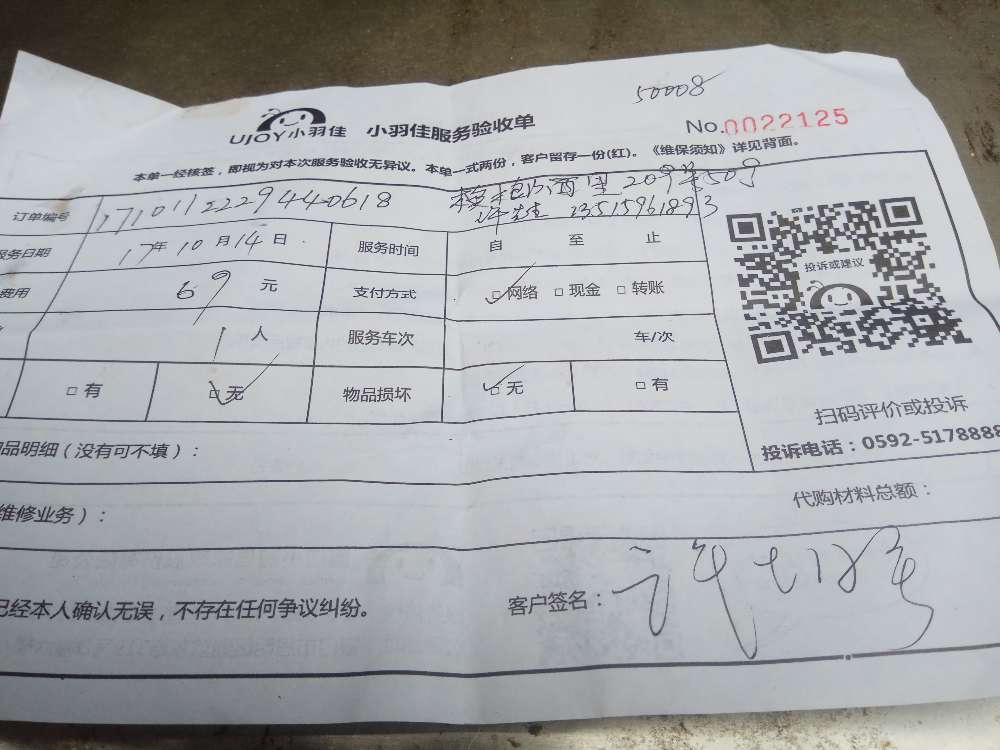 50008
UJOY小羽佳 小羽佳服务验收单
No.0022125
本单一经核签，即视为对本次服务验收无异议。本单一式两份，客户留存一份(红)。《维保须知》详见背面。
订单编号 1710112229440618 西里209 50号
许先生 13515961893
服务日期 17年10月14日 服务时间 自 至 止
费用 69 元 支付方式 □网络 □现金 □转账
1人 服务车次 车/次
□有 □无 物品损坏 □无 □有
投诉或建议
扫码评价或投诉
投诉电话：0592-5178888
品明细（没有可不填）：
代购材料总额：
维修业务）：
已经本人确认无误，不存在任何争议纠纷。
客户签名：许